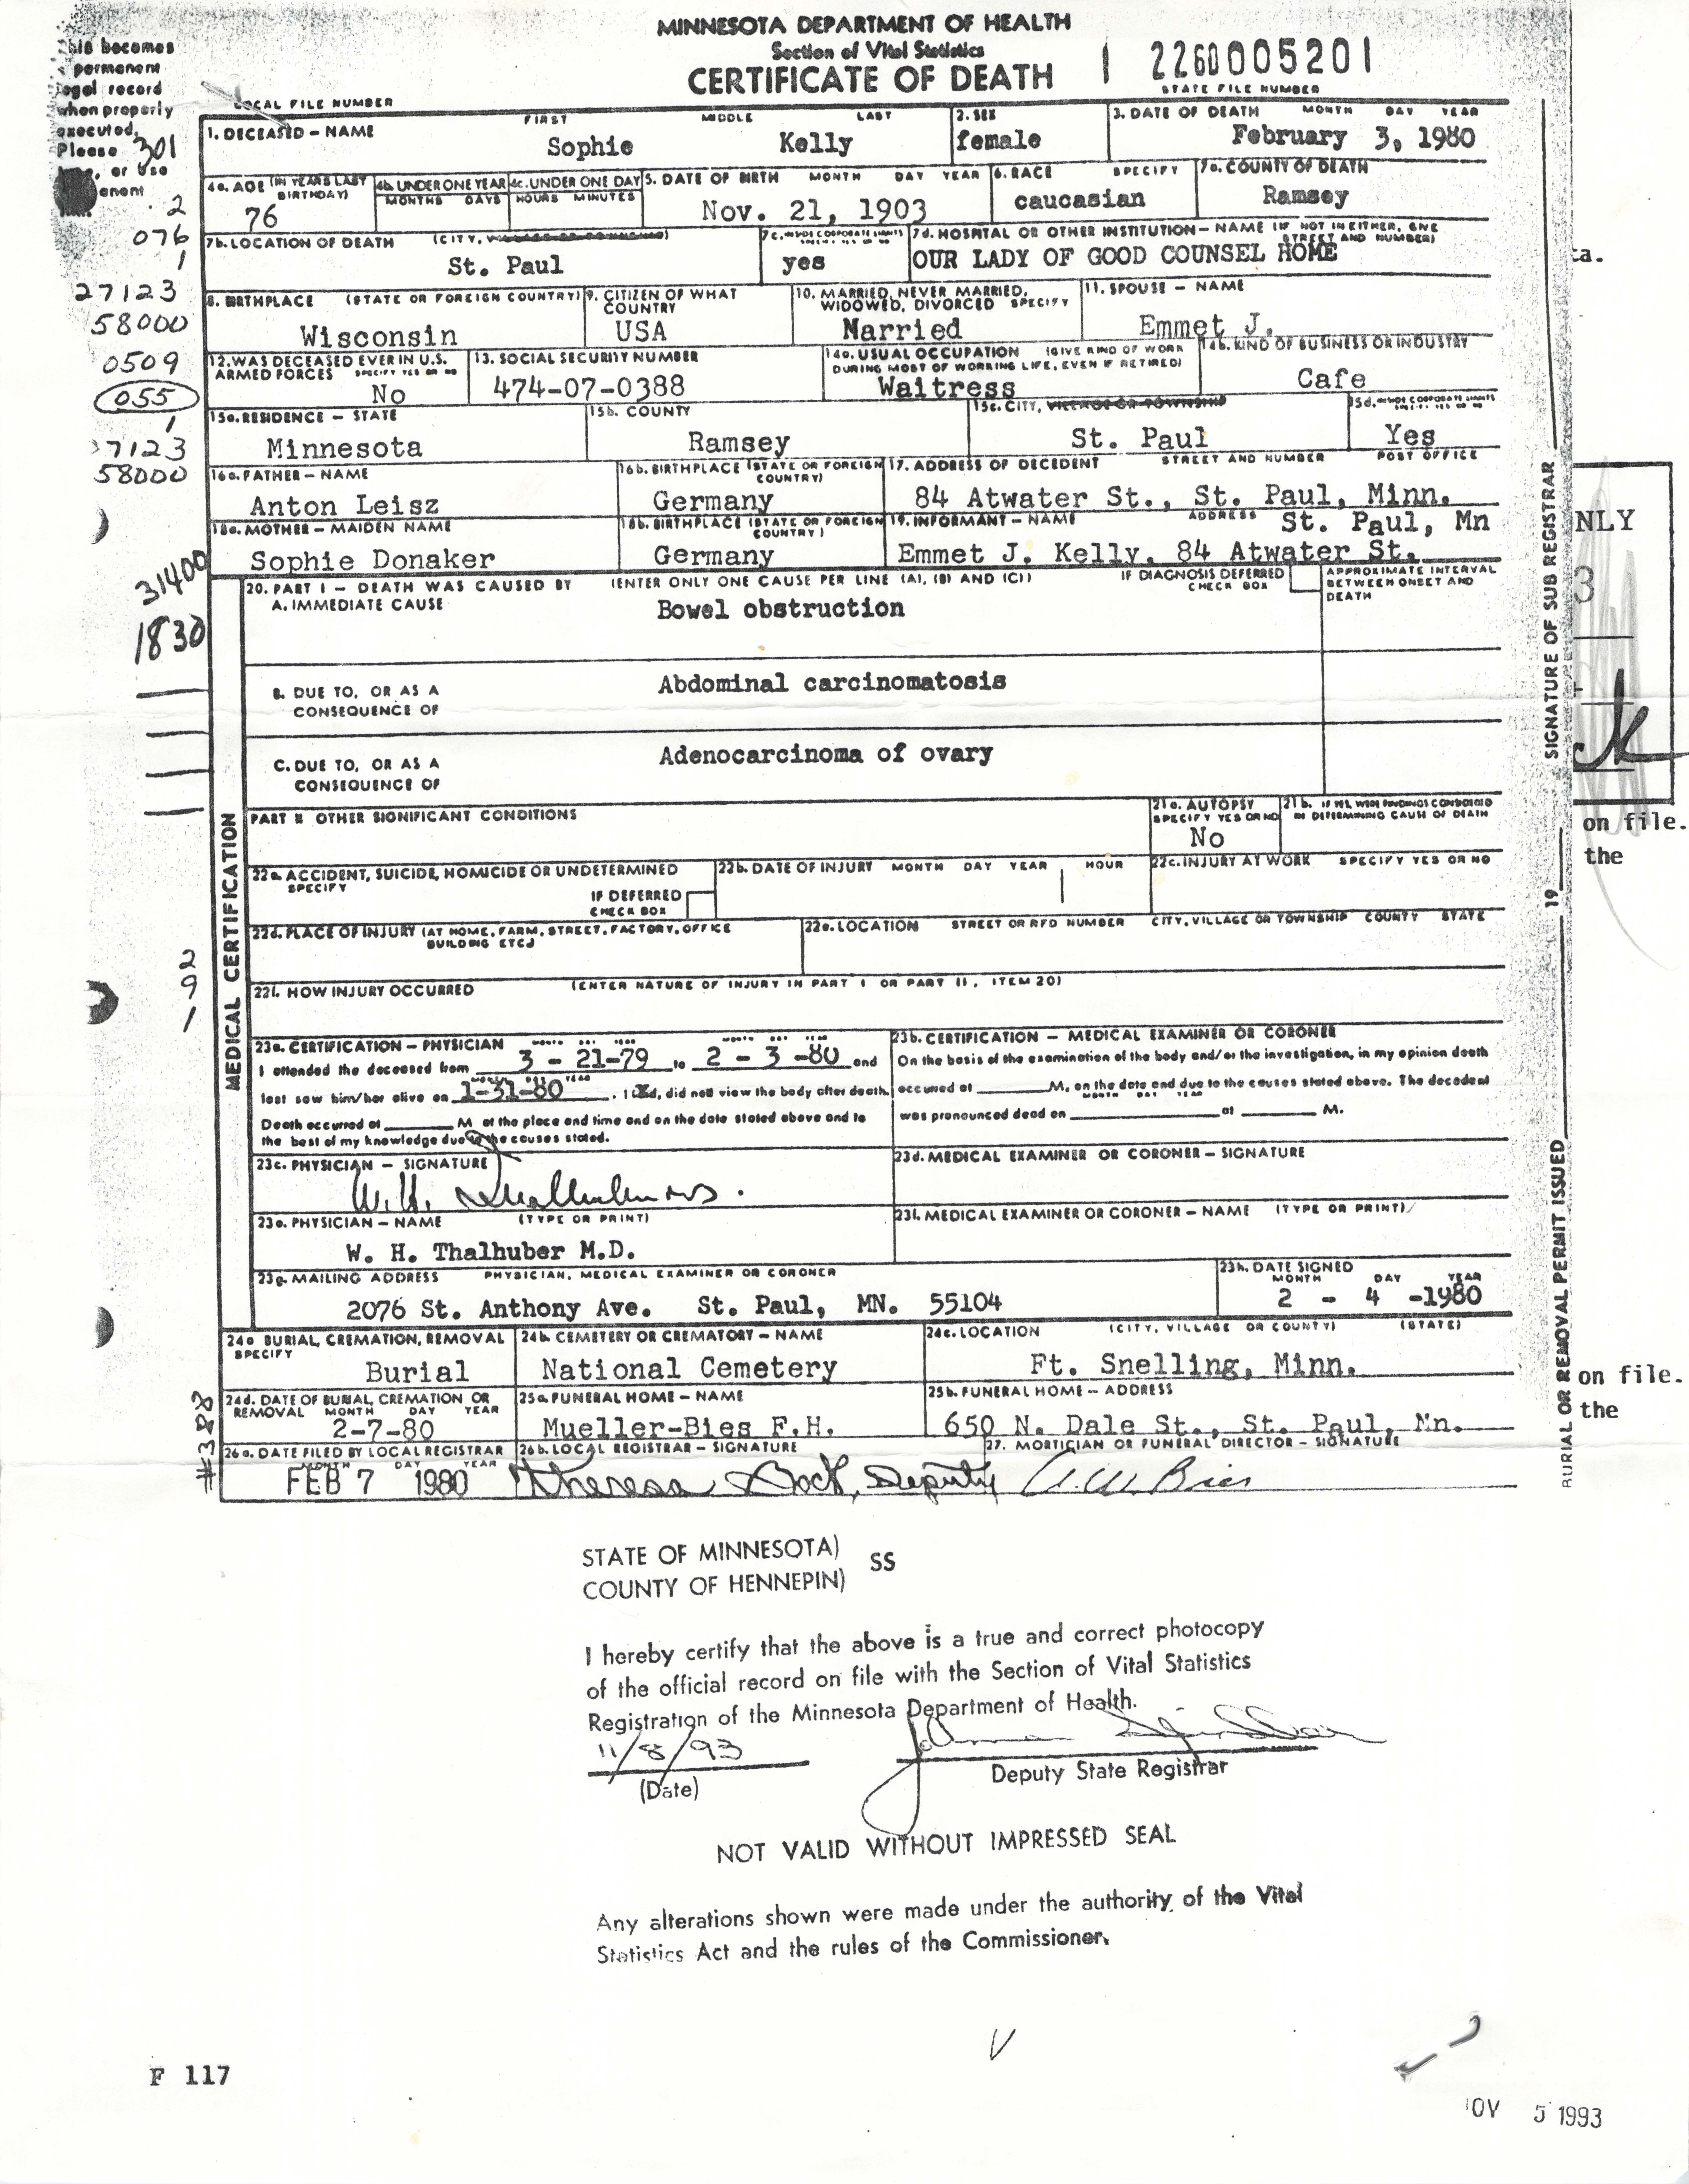 MINNESOTA DEPARTMENT OF HEALTH
Section of Vital Statistics
CERTIFICATE OF DEATH
2260005201
STATE FILE NUMBER
LOCAL FILE NUMBER
This becomes
permanent
legal record
when properly
executed.
Please
or use
301
1. DECEASED – NAME FIRST MIDDLE LAST
Sophie Kelly
2. SEX
female
3. DATE OF DEATH MONTH DAY YEAR
February 3, 1980
4a. AGE (IN YEARS LAST BIRTHDAY)
76
4b. UNDER ONE YEAR
MONTHS DAYS
4c. UNDER ONE DAY
HOURS MINUTES
5. DATE OF BIRTH MONTH DAY YEAR
Nov. 21, 1903
6. RACE SPECIFY
caucasian
7a. COUNTY OF DEATH
Ramsey
7b. LOCATION OF DEATH (CITY, VILLAGE OR TOWNSHIP)
St. Paul
7c. INSIDE CORPORATE LIMITS
yes
7d. HOSPITAL OR OTHER INSTITUTION – NAME (IF NOT IN EITHER, GIVE STREET AND NUMBER)
OUR LADY OF GOOD COUNSEL HOME
8. BIRTHPLACE (STATE OR FOREIGN COUNTRY)
Wisconsin
9. CITIZEN OF WHAT COUNTRY
USA
10. MARRIED, NEVER MARRIED, WIDOWED, DIVORCED SPECIFY
Married
11. SPOUSE – NAME
Emmet J.
12. WAS DECEASED EVER IN U.S. ARMED FORCES SPECIFY YES OR NO
No
13. SOCIAL SECURITY NUMBER
474-07-0388
14a. USUAL OCCUPATION (GIVE KIND OF WORK DURING MOST OF WORKING LIFE, EVEN IF RETIRED)
Waitress
14b. KIND OF BUSINESS OR INDUSTRY
Cafe
15a. RESIDENCE – STATE
Minnesota
15b. COUNTY
Ramsey
15c. CITY, VILLAGE OR TOWNSHIP
St. Paul
15d. INSIDE CORPORATE LIMITS
Yes
16a. FATHER – NAME
Anton Leisz
16b. BIRTHPLACE (STATE OR FOREIGN COUNTRY)
Germany
17. ADDRESS OF DECEDENT STREET AND NUMBER POST OFFICE
84 Atwater St., St. Paul, Minn.
18a. MOTHER – MAIDEN NAME
Sophie Donaker
18b. BIRTHPLACE (STATE OR FOREIGN COUNTRY)
Germany
19. INFORMANT – NAME ADDRESS
St. Paul, Mn
Emmet J. Kelly, 84 Atwater St.
2
076
1
27123
58000
0509
055
1
7123
58000
31400
1830
2
9
1
#388
MEDICAL CERTIFICATION
20. PART I – DEATH WAS CAUSED BY (ENTER ONLY ONE CAUSE PER LINE (A), (B) AND (C))
IF DIAGNOSIS DEFERRED CHECK BOX
APPROXIMATE INTERVAL BETWEEN ONSET AND DEATH
A. IMMEDIATE CAUSE
Bowel obstruction
B. DUE TO, OR AS A CONSEQUENCE OF
Abdominal carcinomatosis
C. DUE TO, OR AS A CONSEQUENCE OF
Adenocarcinoma of ovary
PART II OTHER SIGNIFICANT CONDITIONS
21a. AUTOPSY SPECIFY YES OR NO
No
21b. IF YES, WERE FINDINGS CONSIDERED IN DETERMINING CAUSE OF DEATH
22a. ACCIDENT, SUICIDE, HOMICIDE OR UNDETERMINED
SPECIFY
IF DEFERRED CHECK BOX
22b. DATE OF INJURY MONTH DAY YEAR HOUR
22c. INJURY AT WORK SPECIFY YES OR NO
22d. PLACE OF INJURY (AT HOME, FARM, STREET, FACTORY, OFFICE BUILDING ETC.)
22e. LOCATION STREET OR RFD NUMBER CITY, VILLAGE OR TOWNSHIP COUNTY STATE
22f. HOW INJURY OCCURRED (ENTER NATURE OF INJURY IN PART I OR PART II, ITEM 20)
23a. CERTIFICATION – PHYSICIAN MONTH DAY YEAR MONTH DAY YEAR
I attended the deceased from 3 - 21-79 to 2 - 3 -80 and
last saw him/her alive on 1-31-80. I did, did not view the body after death.
Death occurred at M. at the place and time and on the date stated above and to
the best of my knowledge due to the causes stated.
23b. CERTIFICATION – MEDICAL EXAMINER OR CORONER
On the basis of the examination of the body and/or the investigation, in my opinion death
occured at M. on the date and due to the causes stated above. The decedent
MONTH DAY YEAR
was pronounced dead on at M.
23c. PHYSICIAN – SIGNATURE
W.H. Thalhuber M.D.
23d. MEDICAL EXAMINER OR CORONER – SIGNATURE
23e. PHYSICIAN – NAME (TYPE OR PRINT)
W. H. Thalhuber M.D.
23f. MEDICAL EXAMINER OR CORONER – NAME (TYPE OR PRINT)
23g. MAILING ADDRESS PHYSICIAN, MEDICAL EXAMINER OR CORONER
2076 St. Anthony Ave. St. Paul, MN. 55104
23h. DATE SIGNED
MONTH DAY YEAR
2 - 4 -1980
24a BURIAL, CREMATION, REMOVAL
SPECIFY
Burial
24b. CEMETERY OR CREMATORY – NAME
National Cemetery
24c. LOCATION (CITY, VILLAGE OR COUNTY) (STATE)
Ft. Snelling, Minn.
24d. DATE OF BURIAL, CREMATION OR REMOVAL MONTH DAY YEAR
2-7-80
25a FUNERAL HOME – NAME
Mueller-Bies F.H.
25b. FUNERAL HOME – ADDRESS
650 N. Dale St., St. Paul, Mn.
26a. DATE FILED BY LOCAL REGISTRAR
MONTH DAY YEAR
FEB 7 1980
26b. LOCAL REGISTRAR – SIGNATURE
Theresa Bock, Deputy
27. MORTICIAN OR FUNERAL DIRECTOR – SIGNATURE
A.W. Bies
BURIAL OR REMOVAL PERMIT ISSUED 19 SIGNATURE OF SUB REGISTRAR
ta.
NLY
3
on file.
the
on file.
the
STATE OF MINNESOTA)
COUNTY OF HENNEPIN)
SS
I hereby certify that the above is a true and correct photocopy
of the official record on file with the Section of Vital Statistics
Registration of the Minnesota Department of Health.
11/8/93
(Date)
Deputy State Registrar
NOT VALID WITHOUT IMPRESSED SEAL
Any alterations shown were made under the authority of the Vital
Statistics Act and the rules of the Commissioner.
F 117
OV 5 1993